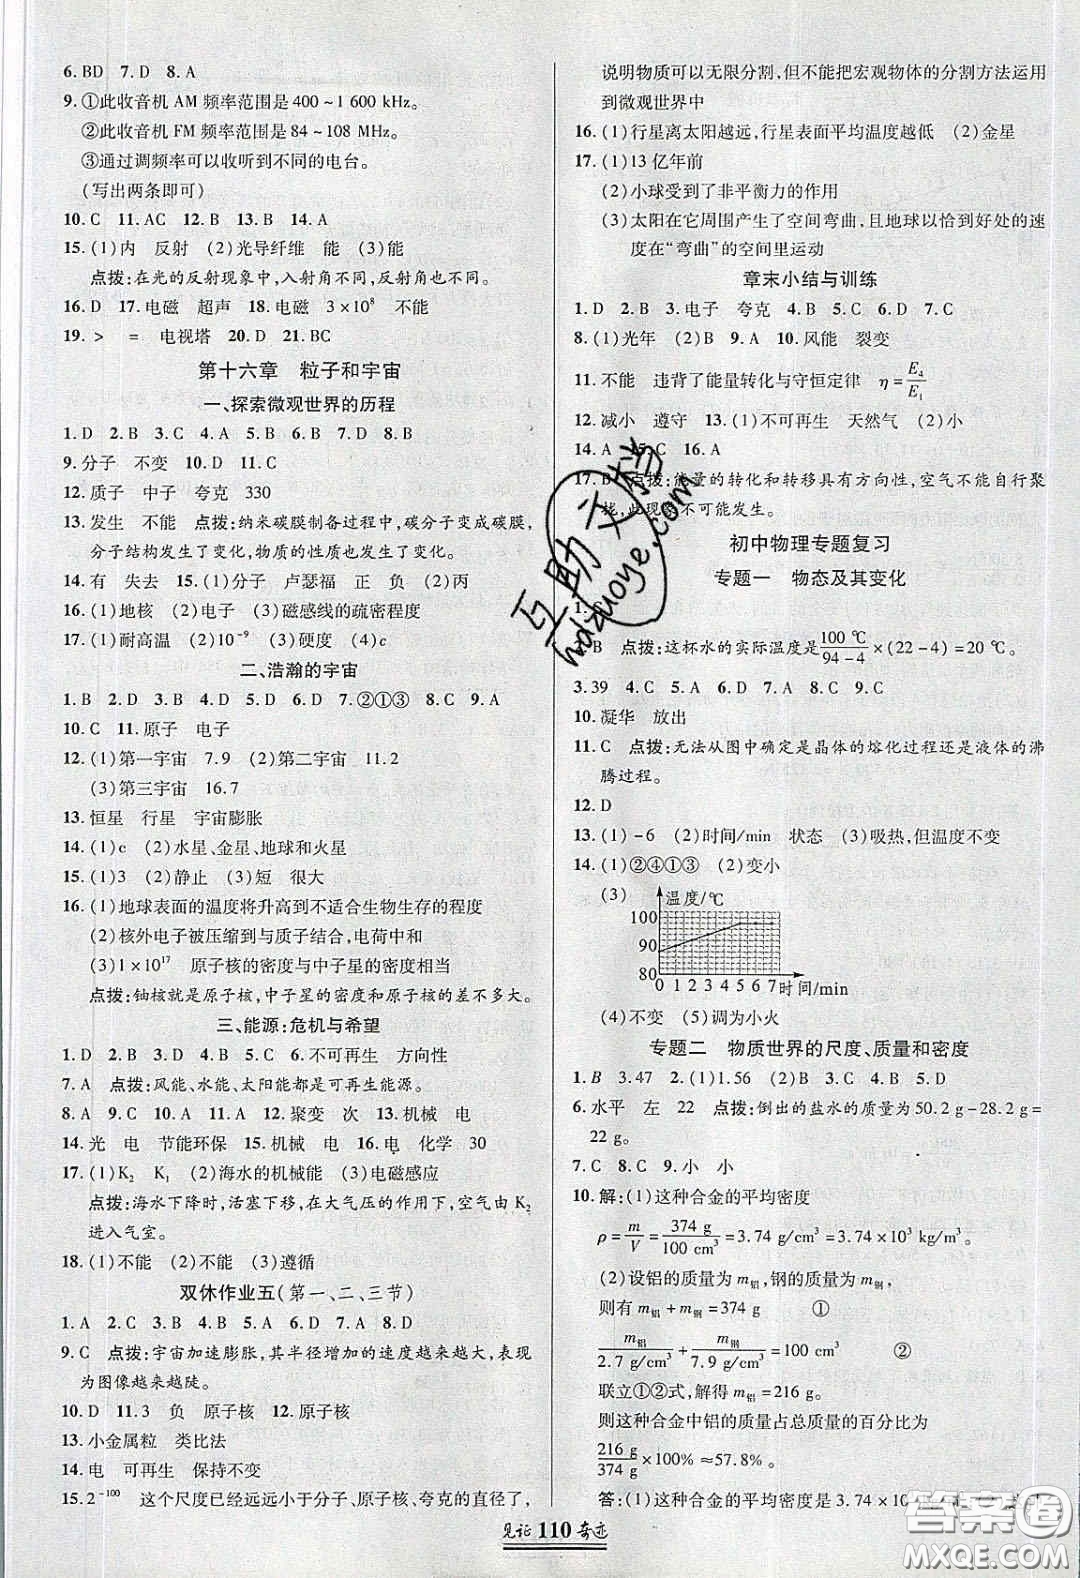 6.BD 7.D 8.A
9.①此收音机 AM 频率范围是 400~1 600 kHz。
②此收音机 FM 频率范围是 84~108 MHz。
③通过调频率可以收听到不同的电台。
(写出两条即可)
10.C 11.AC 12.B 13.B 14.A
15.(1)内 反射 (2)光导纤维 能 (3)能
点拨:在光的反射现象中,入射角不同,反射角也不同。
16.D 17.电磁 超声 18.电磁 3×10⁸ 不能
19.> = 电视塔 20.D 21.BC
第十六章 粒子和宇宙
一、探索微观世界的历程
1.D 2.B 3.C 4.A 5.B 6.B 7.C 8.D
9.分子 不变 10.D 11.C
12.质子 中子 夸克 330
13.发生 不能 点拨:纳米碳膜制备过程中,碳分子变成碳膜,
分子结构发生了变化,物质的性质也发生了变化。
14.有 失去 15.(1)分子 卢瑟福 正 负 (2)丙
16.(1)地核 (2)地球 (3)磁感线的疏密程度
17.(1)耐高温 (2)10⁻⁹ (3)硬度 (4)c
二、浩瀚的宇宙
1.B 2.D 3.D 4.A 5.D 6.D 7.②①③ 8.C 9.A
10.C 11.原子 电子
12.(1)第一宇宙 7.9 (2)第二宇宙 11.2
(3)第三宇宙 16.7
13.恒星 行星 宇宙膨胀
14.(1)c (2)水星、金星、地球和火星
15.(1)3 (2)静止 (3)短 很大
16.(1)地球表面的温度将升高到不适合生物生存的程度
(2)核外电子被压缩到与质子结合,电荷中和
(3)1×10¹⁷ 原子核的密度与中子星的密度相当
点拨:铀核就是原子核,中子星的密度和原子核的差不多大。
三、能源:危机与希望
1.D 2.D 3.D 4.B 5.C 6.不可再生 方向性
7.A 点拨:风能、水能、太阳能都是可再生能源。
8.A 9.C 10.A 11.A 12.聚变 次 13.机械 电
14.光 电 节能环保 15.机械 电 16.电 化学 30
17.(1)K₂ K₁ (2)海水的机械能 (3)电磁感应
点拨:海水下降时,活塞下移,在大气压的作用下,空气由 K₂
进入气室。
18.(1)不能 (2)不能 (3)遵循
双休作业五(第一、二、三节)
1.A 2.D 3.B 4.B 5.D 6.D 7.A 8.D
9.C 点拨:宇宙加速膨胀,其半径增加的速度越来越大,表现
为图像越来越陡。
10.D 11.3 负 原子核 12.原子核
13.小金属粒 类比法
14.电 可再生 保持不变
15.2⁻¹⁰⁰ 这个尺度已经远远小于分子、原子核、夸克的直径了,
说明物质可以无限分割,但不能把宏观物体的分割方法运用
到微观世界中
16.(1)行星离太阳越远,行星表面平均温度越低 (2)金星
17.(1)13 亿年前
(2)小球受到了非平衡力的作用
(3)太阳在它周围产生了空间弯曲,且地球以恰到好处的速
度在“弯曲”的空间里运动
章末小结与训练
1.D 2.B 3.电子 夸克 4.D 5.D 6.D 7.C
8.(1)光年 (2)B 9.A 10.风能 裂变
11.不能 违背了能量转化与守恒定律 η=E₄/E₁
12.减小 遵守 13.(1)不可再生 天然气 (2)小
14.A 15.C 16.A
17.B 点拨:能量的转化和转移具有方向性,空气不能自行聚
拢,此现象不可能发生。
初中物理专题复习
专题一 物态及其变化
1.C
2.B 点拨:这杯水的实际温度是100 ℃/(94-4)×(22-4)=20 ℃。
3.39 4.C 5.A 6.D 7.D 8.A 9.C
10.凝华 放出
11.C 点拨:无法从图中确定是晶体的熔化过程还是液体的沸
腾过程。
12.D
13.(1)-6 (2)时间/min 状态 (3)吸热,但温度不变
14.(1)②④①③ (2)变小
(3)
温度/℃
100
90
80
0 1 2 3 4 5 6 7 时间/min
(4)不变 (5)调为小火
专题二 物质世界的尺度、质量和密度
1.B 3.47 2.(1)1.56 (2)2 3.C 4.B 5.D
6.水平 左 22 点拨:倒出的盐水的质量为 50.2 g-28.2 g=
22 g。
7.C 8.C 9.小 小
10.解:(1)这种合金的平均密度
ρ=m/V=374 g/100 cm³=3.74 g/cm³=3.74×10³ kg/m³。
(2)设铝的质量为 m铝,钢的质量为 m钢,
则有 m铝+m钢=374 g ①
m铝/2.7 g/cm³+m钢/7.9 g/cm³=100 cm³ ②
联立①②式,解得 m铝=216 g。
则这种合金中铝的质量占总质量的百分比为
216 g/374 g×100% ≈57.8%。
答:(1)这种合金的平均密度是 3.74×10
见证 110 奇迹
互助文档
hdzuoye.com
答案圈
MXQE.COM